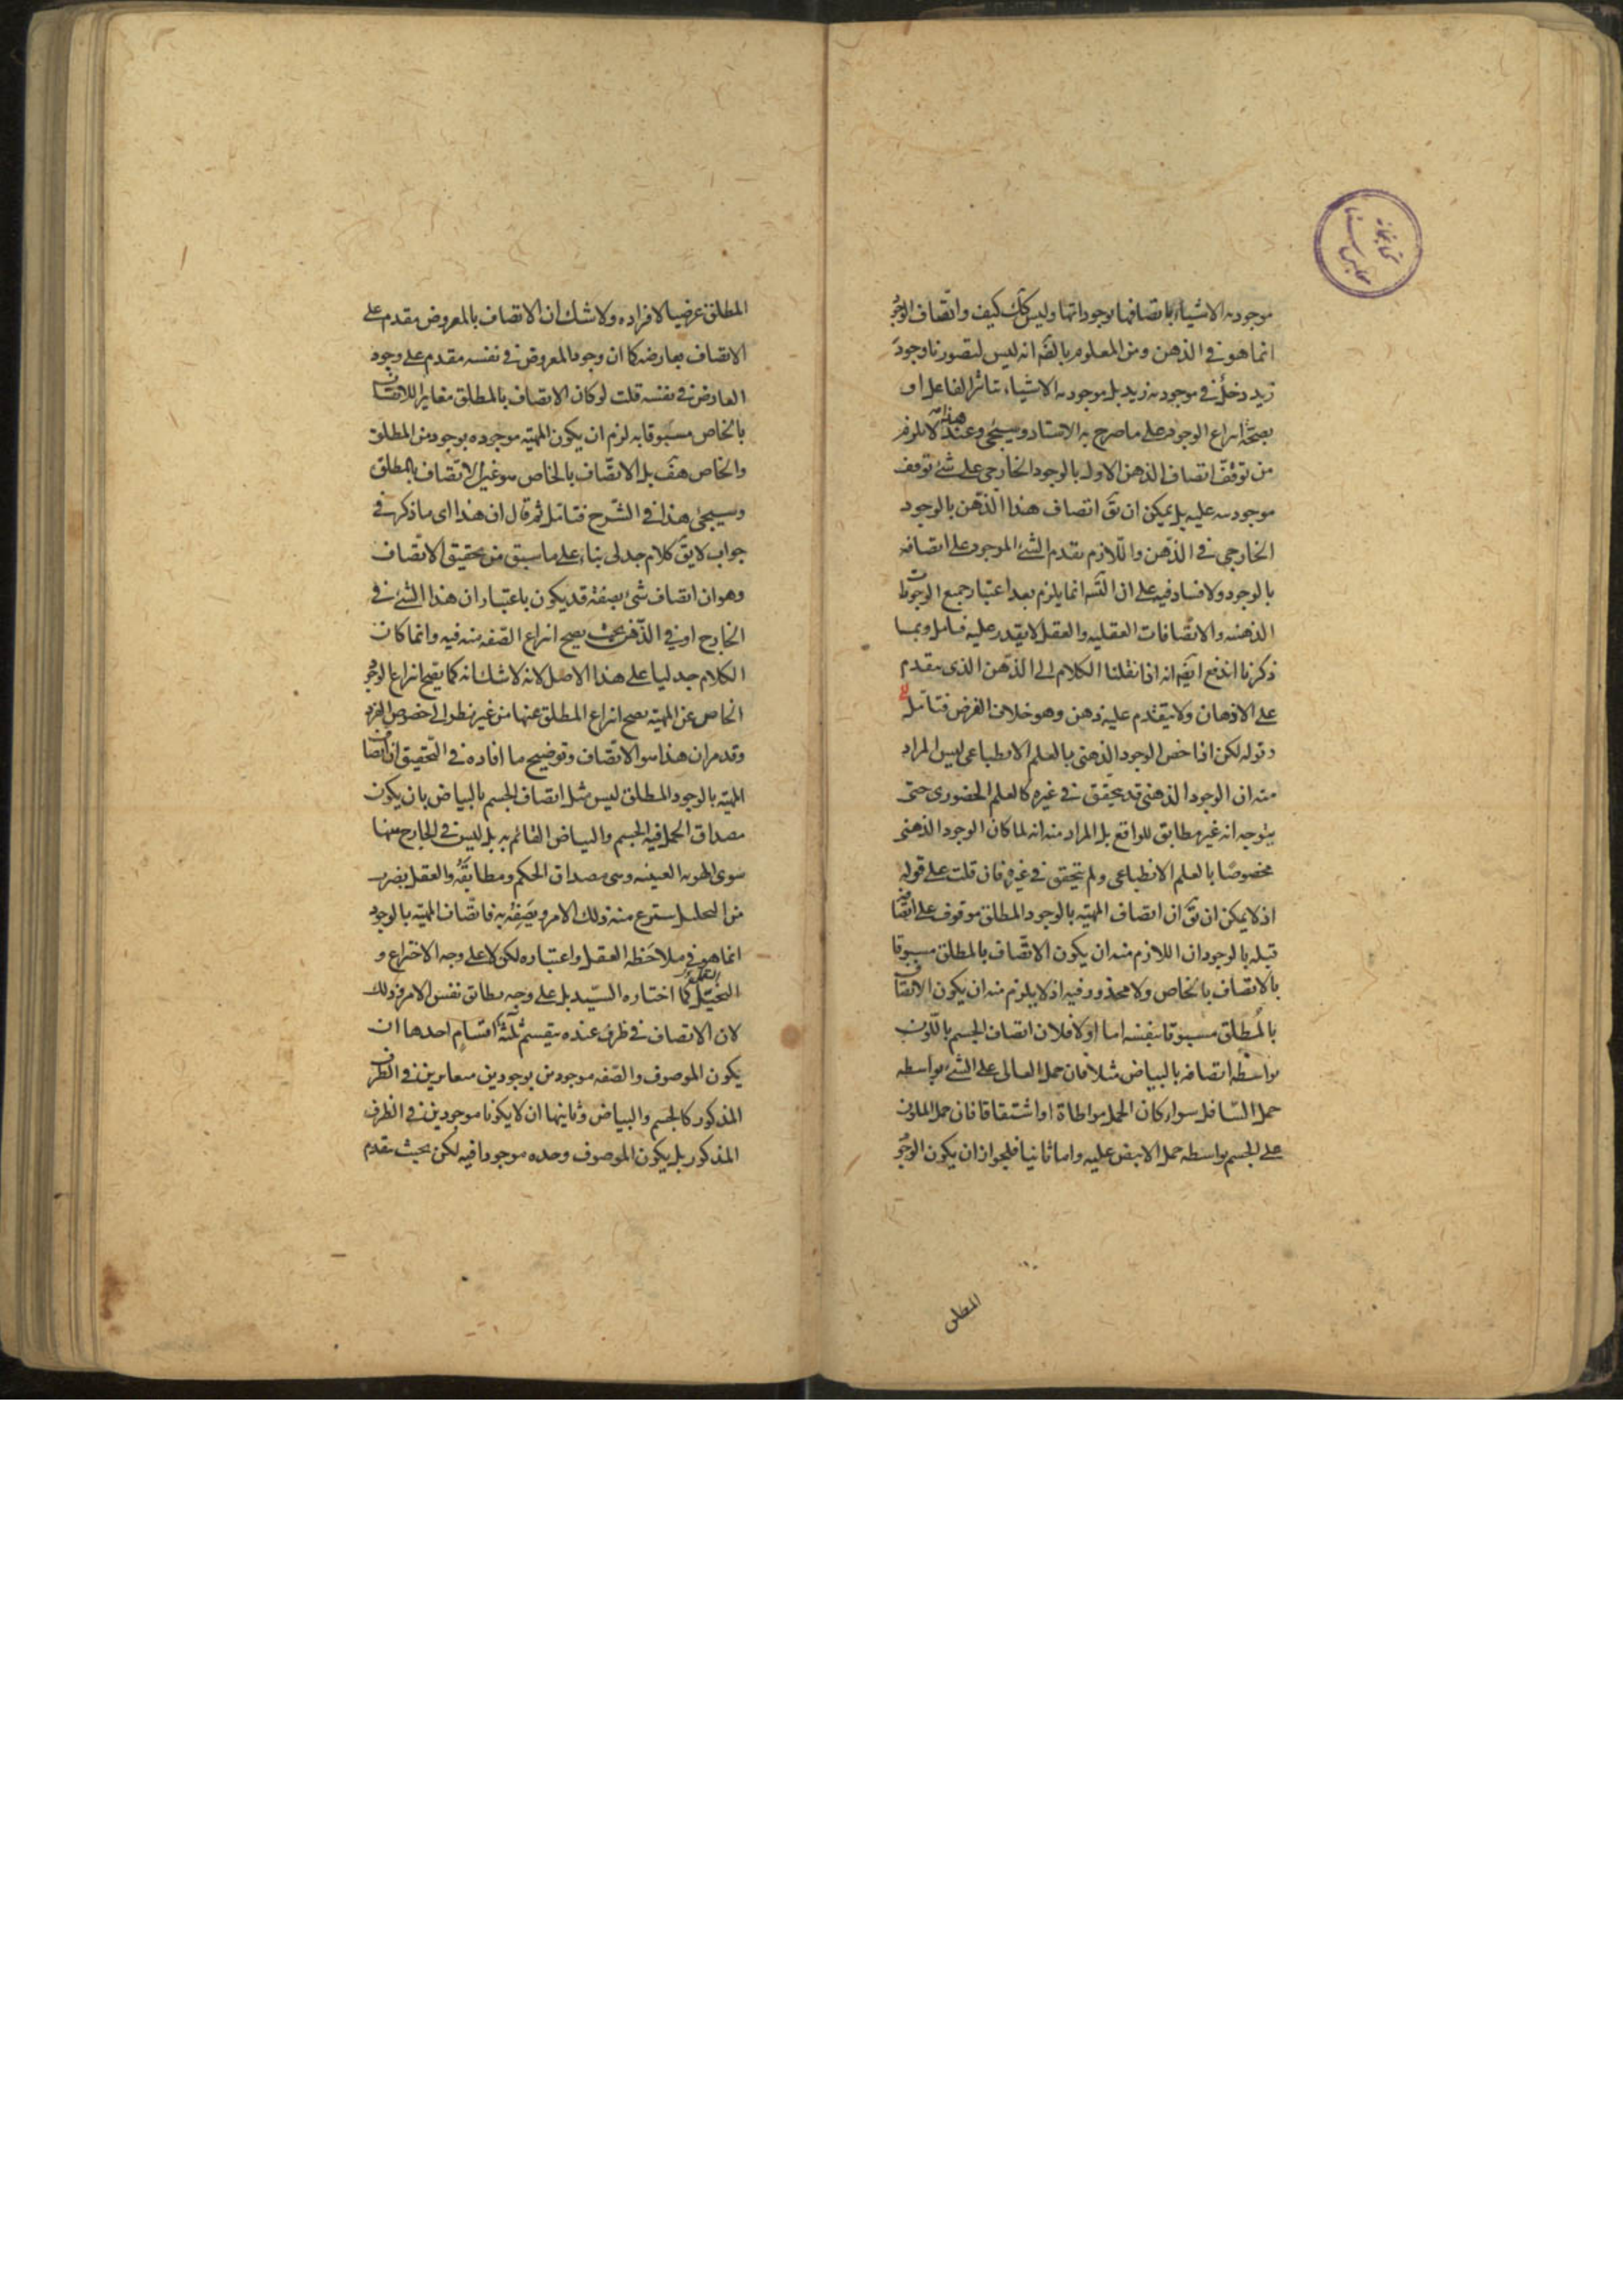 موجودیه الاشیاء باتصافها بوجوداتها ولیس کک کیف واتصاف الوجود
انما هو فی الذهن ومن المعلوم بالضّه انه لیس لتصورنا وجود
زید دخل فی موجودیه زید بل موجودیه الاشیاء بتاثر الفاعل او
بصحّة انتزاع الوجود علی ما صرح به الاستاد وسیجئ وعند هذا لا یلزم
من توقف اتصاف الذهن الاول بالوجود الخارجی علی شئ توقف
موجودیته علیه بل یمکن ان یق اتصاف هذا الذهن بالوجود
الخارجی فی الذهن واللازم تقدم الشئ الموجود علی اتصافه
بالوجود ولا فساد فیه علی ان التسه انما یلزم بعد اعتبار جمیع الوجودات
الذهنیه والاتصافات العقلیه والعقل لا یقدر علیه فتامل وبما
ذکرنا اندفع ایضه انه اذا نقلنا الکلام الی الذهن الذی یتقدم
علی الاذهان ولا یتقدم علیه ذهن وهو خلاف الفرض فتامل
قوله لکن اذا خص الوجود الذهنی بالعلم الانطباعی لیس المراد
منه ان الوجود الذهنی قد یتحقق فی غیره کالعلم الحضوری حتی
یتوجه انه غیر مطابق للواقع بل المراد منه انه لما کان الوجود الذهنی
مخصوصًا بالعلم الانطباعی ولم یتحقق فی غیره فان قلت علی قوله
اذ لا یمکن ان یق ان اتصاف المهیّه بالوجود المطلق موقوف علی اتصافه
قبله بالوجود ان اللازم منه ان یکون الاتّصاف بالمطلق مسبوقا
بالاتصاف بالخاص ولا محذور فیه اذ لا یلزم منه ان یکون الاتصاف
بالمطلق مسبوقا بنفسه اما اولا فلان اتصاف الجسم باللّون
بواسطه اتصافه بالبیاض مثلا فان حمل العالی علی الشئ بواسطه
حمل السّافل سواء کان الحمل مواطاة او اشتقاقا فان حمل الملون
علی الجسم بواسطه حمل الابیض علیه واما ثانیا فلجواز ان یکون الوجود
المطلق
المطلق عرضیا لافراده ولا شک ان الاتصاف بالمعروض مقدم علی
الاتصاف بعارضه کما ان وجود المعروض فی نفسه مقدم علی وجود
العارض فی نفسه قلت لو کان الاتصاف بالمطلق مغایرا للاتصاف
بالخاص مسبوقا به لزم ان یکون المهیّه موجوده بوجودین المطلق
والخاص هف بل الاتصّاف بالخاص هو عین الاتّصاف بالمطلق
وسیجئ هذا فی الشّرح فتامل ثم قال ان هذا ای ما ذکره فی
جواب لا یق کلام جدلی بناء علی ما سبق من تحقیق الاتّصاف
وهو ان اتصاف شئ بصفة قد یکون باعتبار ان هذا الشئ فی
الخارج او فی الذّهن بحیث یصح انتزاع الصّفه منه فیه وانما کان
الکلام جدلیا علی هذا الاصل لانه لا شک انه کما یصح انتزاع الوجود
الخاص عن المهیّه یصح انتزاع المطلق عنها من غیر نظر الی خصوص الفرد
وقد مر ان هذا هو الاتّصاف وتوضیح ما افاده فی التّحقیق ان اتصاف
المهیّه بالوجود المطلق لیس مثل اتصاف الجسم بالبیاض بان یکون
مصداق الحمل فیه الجسم والبیاض القائم به بل لیس فی الخارج منها
سوی الهویه العینیه وهی مصداق الحکم ومطابقُه والعقل بضرب
من التحلیل ینتزع منه ذلک الامر ویصفه به فاتّصاف المهیّه بالوجود
انما هو فی ملاحظه العقل واعتباره لکن لا علی وجه الاختراع و
التخیّل کما اختاره السّید بل علی وجه یطابق نفس الامر وذلک
لان الاتصاف فی ظرف عنده ینقسم ثلثة اقسام احدها ان
یکون الموصوف والصّفه موجودین بوجودین متغایرین فی الظرف
المذکور کالجسم والبیاض وثانیها ان لا یکونا موجودین فی الظرف
المذکور بل یکون الموصوف وحده موجودا فیه لکن بحیث یتقدم